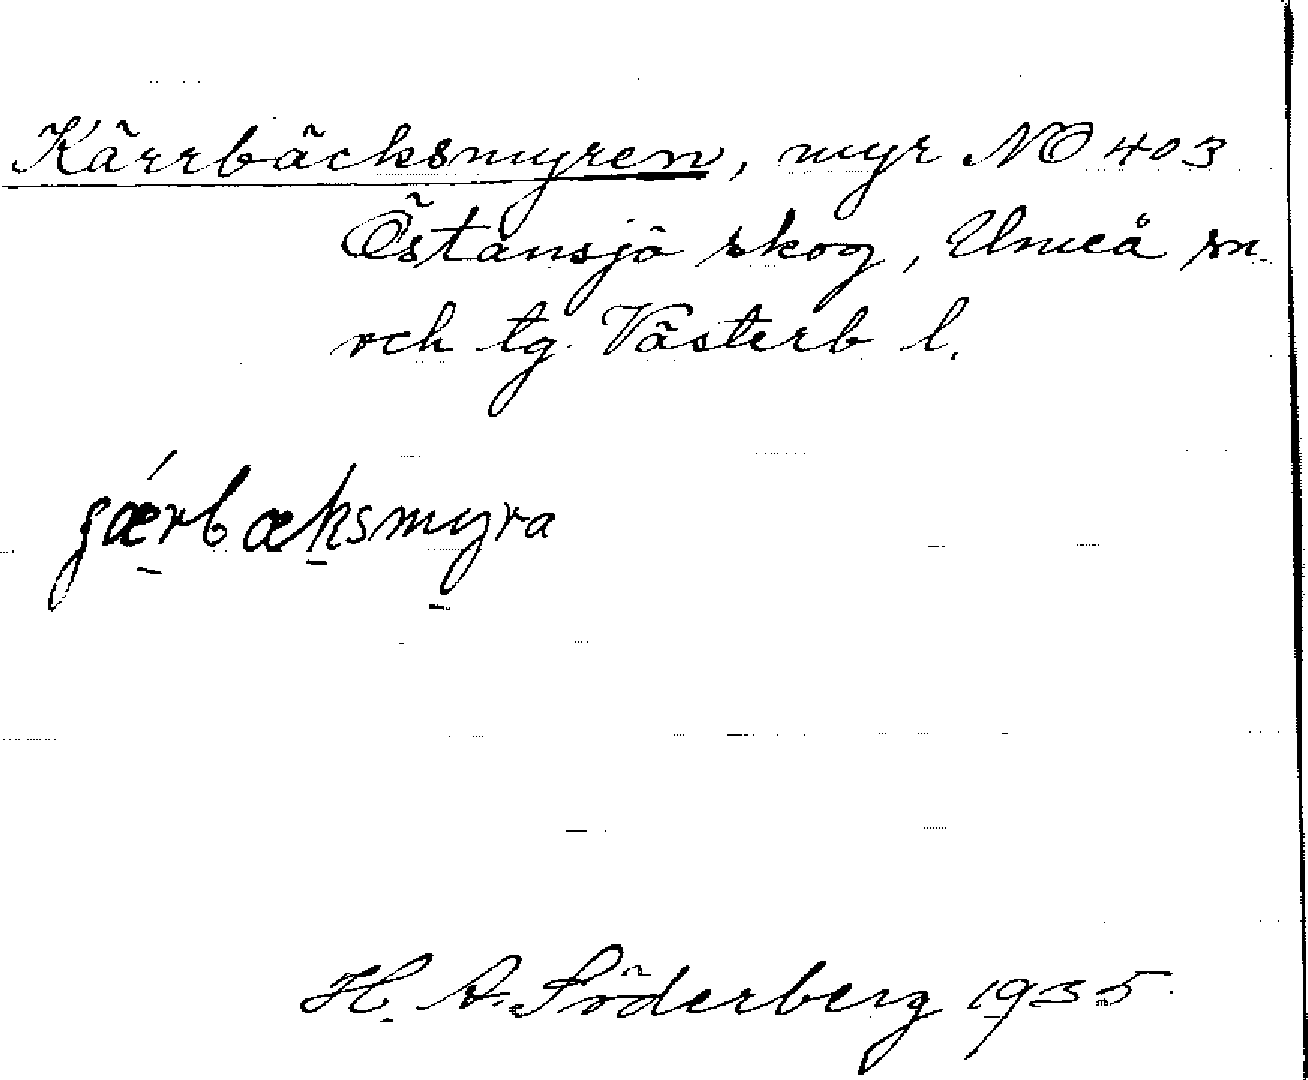 Kärrbäcksmyren, myr NO 403
Östansjö skog, Umeå sn
och tg. Västerb l.
gǽrbæksmyra
H. A. Söderberg 1935